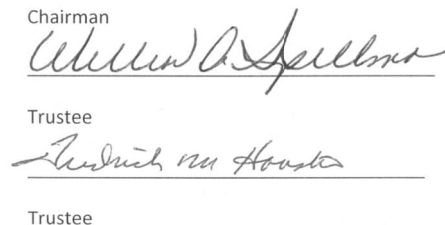 Chairman
William A. Spellman
Trustee
Fredrick M Houston
Trustee